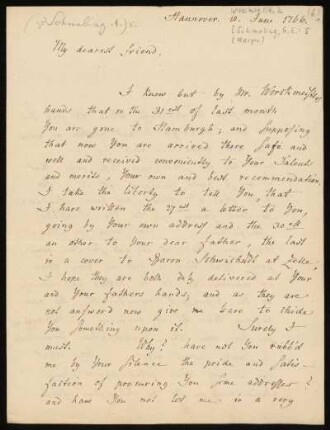 Hannover. 10. June 1766.
My dearest friend.
I knew but by Mr.
hands that on the 31st of last month
You are gone to Hamburgh; and supposing
that now You are arrived there safe and
well and received conveniently to Your Talents
and merits, Your own and best recommendation
I take the liberty to tell You, that
I have written the 27st a letter to You,
going by Your own address and the 30st
an other to Your dear father, the last
in a cover to Baron Schwicheldt at Zelle.
I hope they are both duly delivered at Your
and Your fathers hands, and as they are
not answord now give me leave to chide
You something upon it. Surely I
must. Why? have not You robb'd
me by Your silence the pride and satis-
faction of procuring You some addresses?
and have You not let me in a very